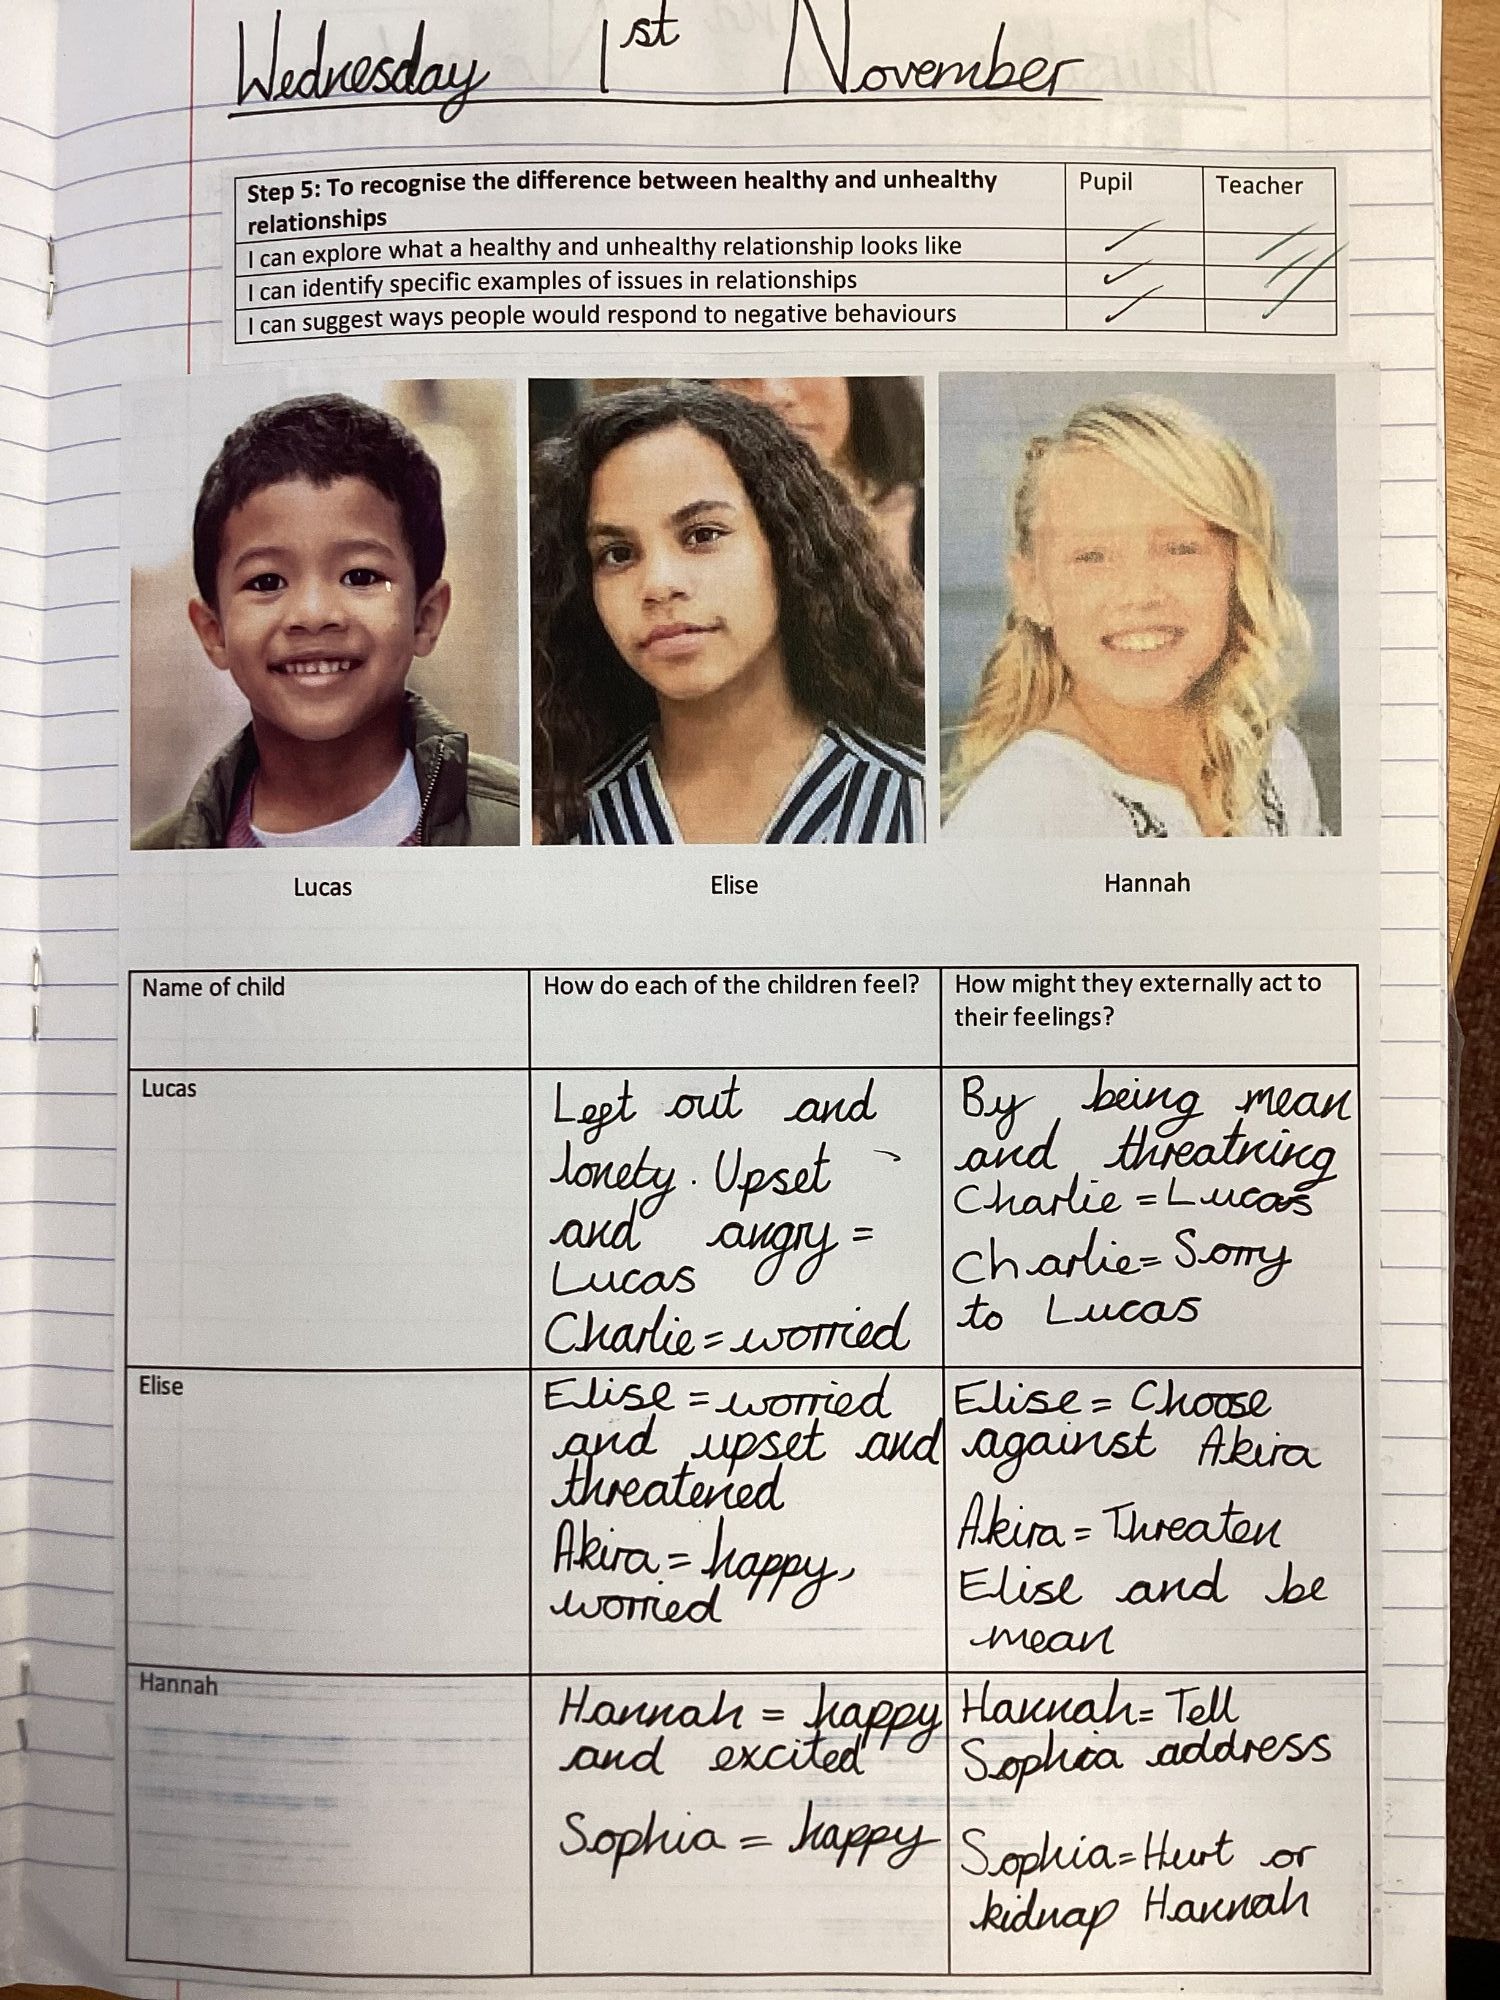 Wednesday 1st November
Step 5: To recognise the difference between healthy and unhealthy
relationships
Pupil
Teacher
I can explore what a healthy and unhealthy relationship looks like
I can identify specific examples of issues in relationships
I can suggest ways people would respond to negative behaviours
Lucas
Elise
Hannah
Name of child
How do each of the children feel?
How might they externally act to
their feelings?
Lucas
Left out and
lonely. Upset
and angry =
Lucas
Charlie = worried
By being mean
and threatning
Charlie = Lucas
Charlie = Sorry
to Lucas
Elise
Elise = worried
and upset and
threatened
Akira = happy,
worried
Elise = Choose
against Akira
Akira = Threaten
Elise and be
mean
Hannah
Hannah = happy
and excited
Sophia = happy
Hannah = Tell
Sophia address
Sophia = Hurt or
kidnap Hannah